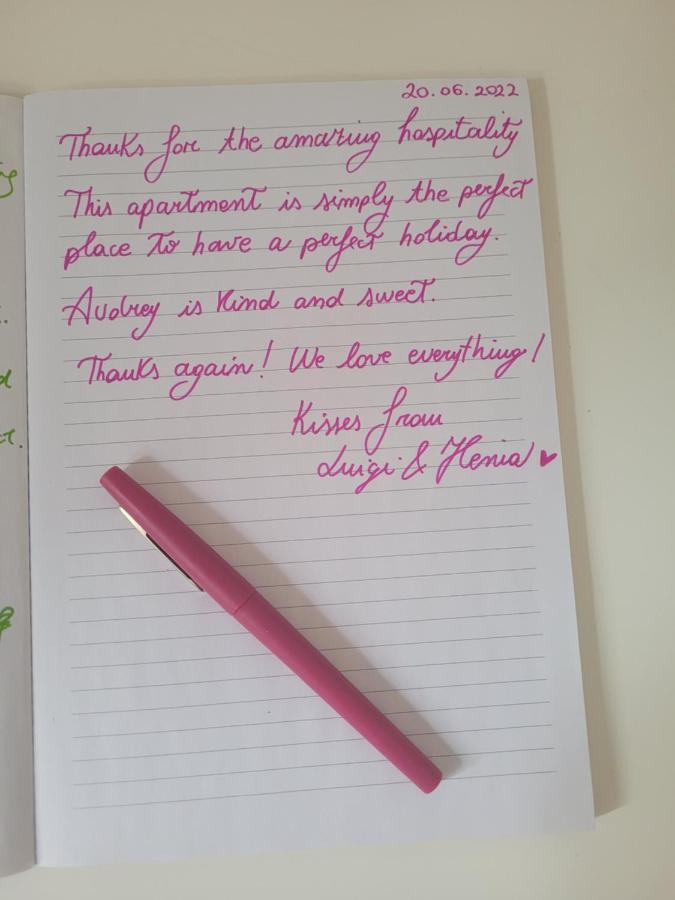 20.06.2022
Thanks for the amazing hospitality
This apartment is simply the perfect
place to have a perfect holiday.
Audrey is kind and sweet.
Thanks again! We love everything!
Kisses from
Luigi & Ilenia ♥